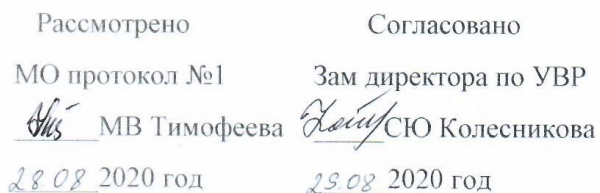 Рассмотрено
МО протокол №1
МВ Тимофеева
28.08 2020 год
Согласовано
Зам директора по УВР
СЮ Колесникова
29.08 2020 год